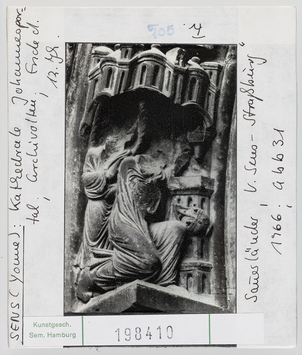 SENS (Yonne): Kathedrale Johannespor-
tal, Archivolten, Ende d.
12. Jh.
Sauerländer, V. Sens - Straßburg"
1966; Abb 31
Kunstgesch.
Sem. Hamburg
198410